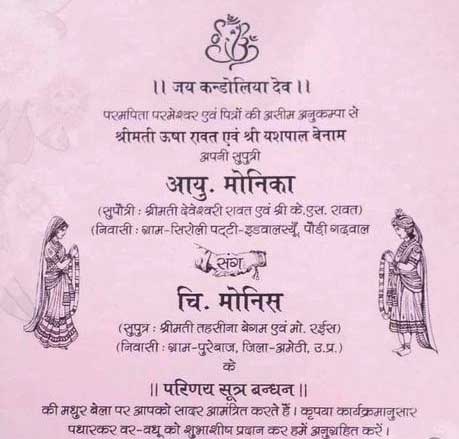 ।। जय कन्डोलिया देव ।।
परमपिता परमेश्वर एवं पित्रों की असीम अनुकम्पा से
श्रीमती ऊषा रावत एवं श्री यशपाल बेनाम
अपनी सुपुत्री
आयु. मोनिका
(सुपौत्री : श्रीमती देवेश्वरी रावत एवं श्री के.एस. रावत)
(निवासी : ग्राम-सिरोली पट्टी-इडवालस्यूँ, पौड़ी गढ़वाल
संग
चि. मोनिस
(सुपुत्र : श्रीमती तहसीना बेगम एवं मो. रईस)
(निवासी : ग्राम-पुरेबाज, जिला-अमेठी, उ.प्र.)
के
|| परिणय सूत्र बन्धन ||
की मधुर बेला पर आपको सादर आमंत्रित करते हैं । कृपया कार्यक्रमानुसार
पधारकर वर-वधू को शुभाशीष प्रदान कर हमें अनुग्रहित करें ।